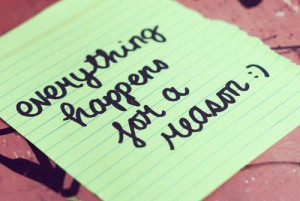 everything
happens
for a
reason :)